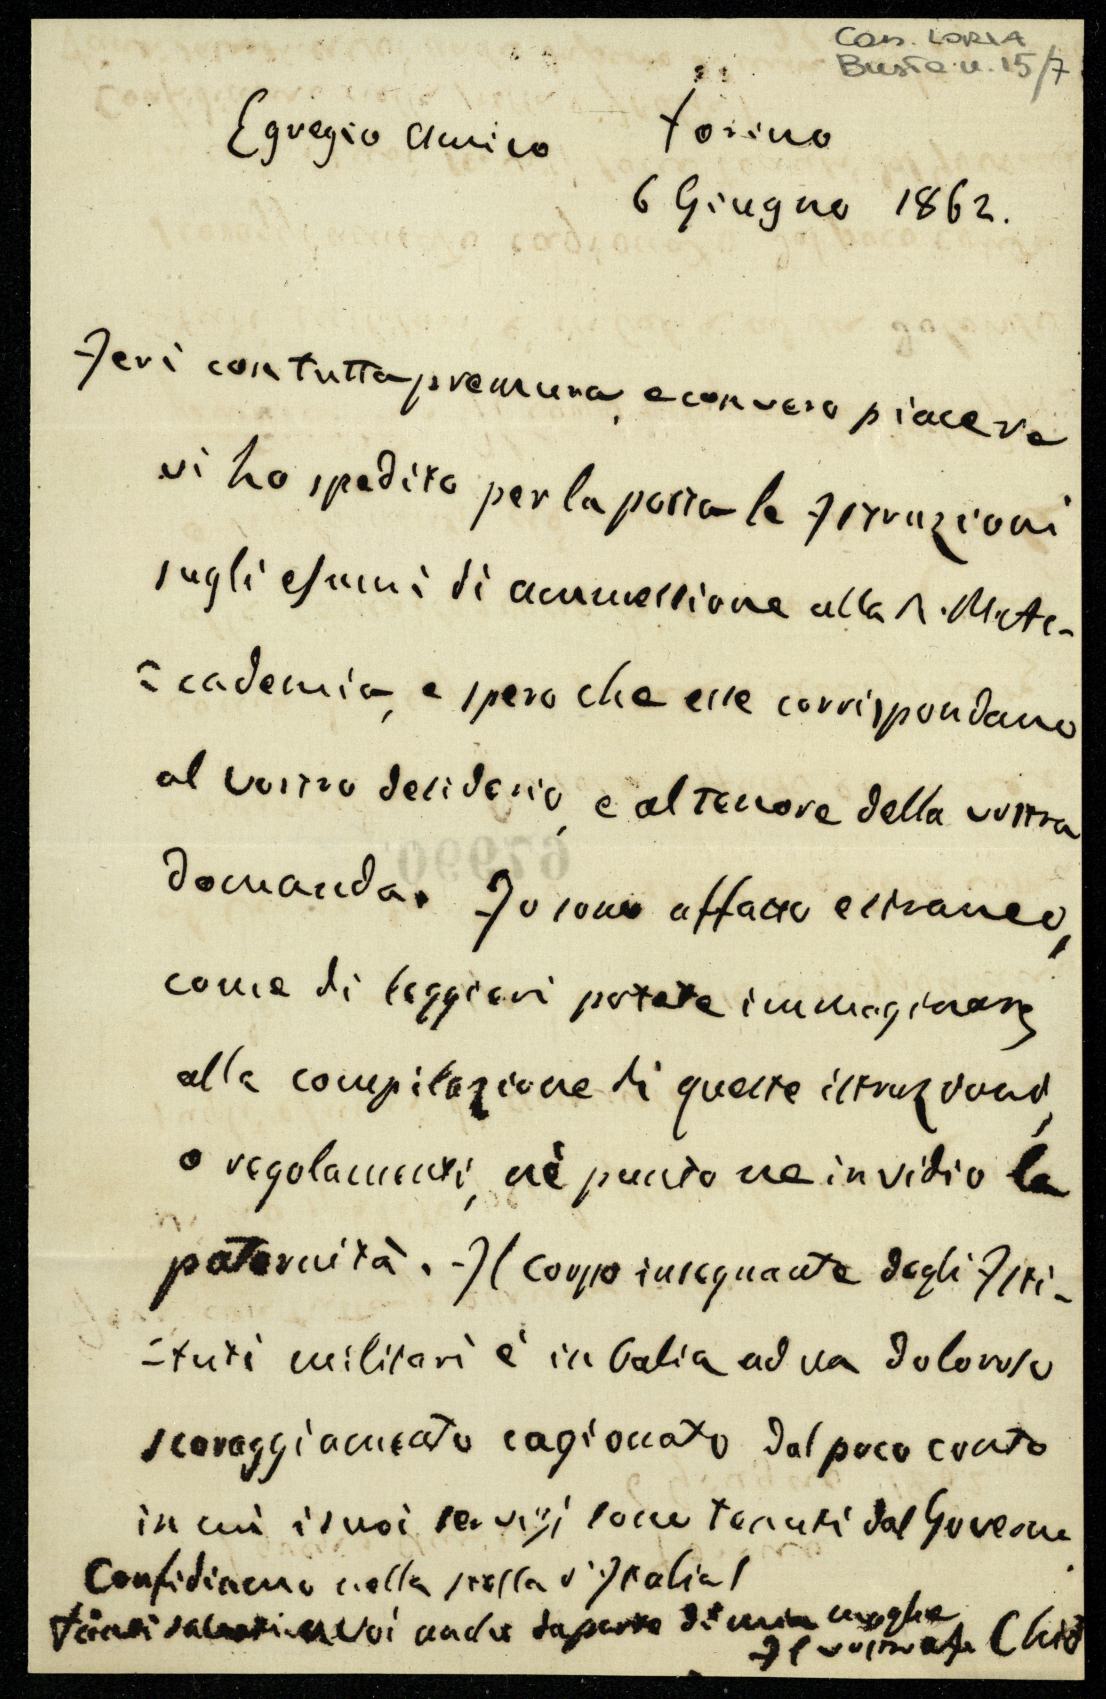 Cas. LORIA
Busta n. 15/7
Egregio Amico Torino
6 Giugno 1862.
Jeri con tutta premura, e con vero piacere
vi ho spedito per la posta le Istruzioni
sugli esami di ammessione alla R. M. Ac-
=cademia, e spero che esse corrispondano
al vostro desiderio, e al tenore della vostra
domanda. Io sono affatto estraneo,
come di leggieri potete immaginare,
alla compilazione di queste istruzioni,
o regolamenti, nè punto ne invidio la
paternità. Il corpo insegnante degli Isti-
=tuti militari è in balia ad un doloroso
scoraggiamento cagionato dal poco conto
in cui i suoi servizj sono tenuti dal Governo.
Confidiamo nella stella d'Italia!
Tanti saluti a Voi anche da parte di mia moglie
Il vostro aff. Chiò